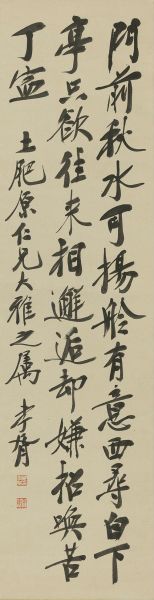 門前秋水可揚舲有意西尋白下
亭只欲往來相邂逅却嫌招喚苦
丁寧
土肥原仁兄大雅之屬 李